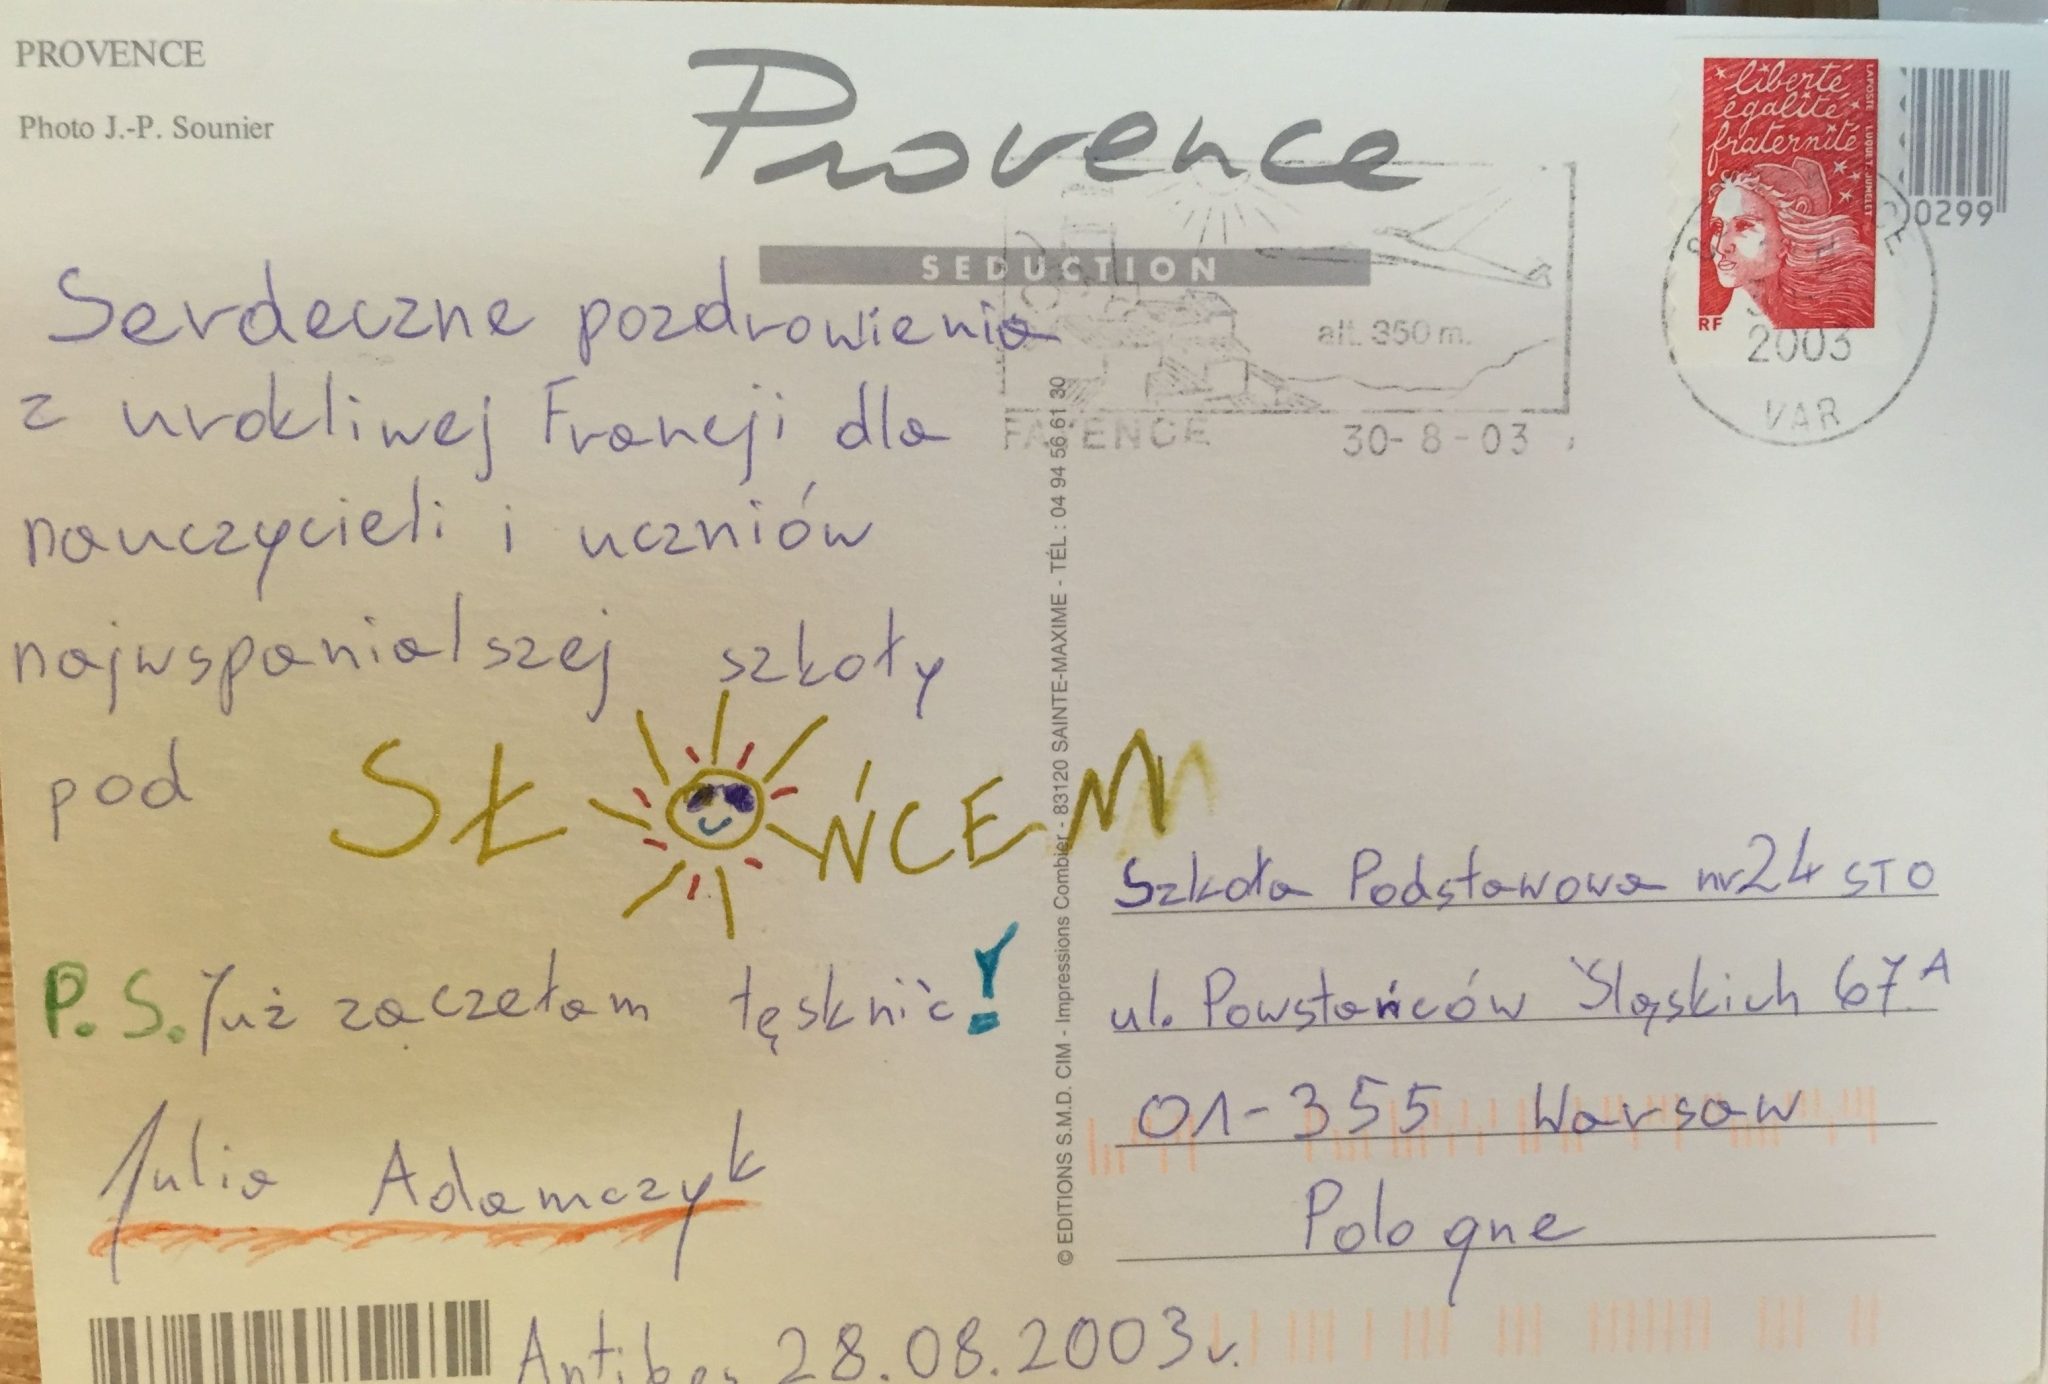 PROVENCE
Photo J.-P. Sounier
Provence
SEDUCTION
liberté
égalité
fraternité
LA POSTE LUQUET-JUMELET
RF
0299
alt. 350 m.
FAYENCE
30-8-03
2003
VAR
Serdeczne pozdrowienia
z urokliwej Francji dla
nauczycieli i uczniów
najwspanialszej szkoły
pod SŁOŃCEM
P.S. Już zaczełam tęsknić!
Julia Adamczyk
Antibes, 28.08.2003r.
© EDITIONS S.M.D. CIM - Impressions Combier - 83120 SAINTE-MAXIME - TÉL : 04 94 56 61 30
Szkoła Podstawowa nr 24 STO
ul. Powstańców Śląskich 67A
01-355 Warsaw
Pologne